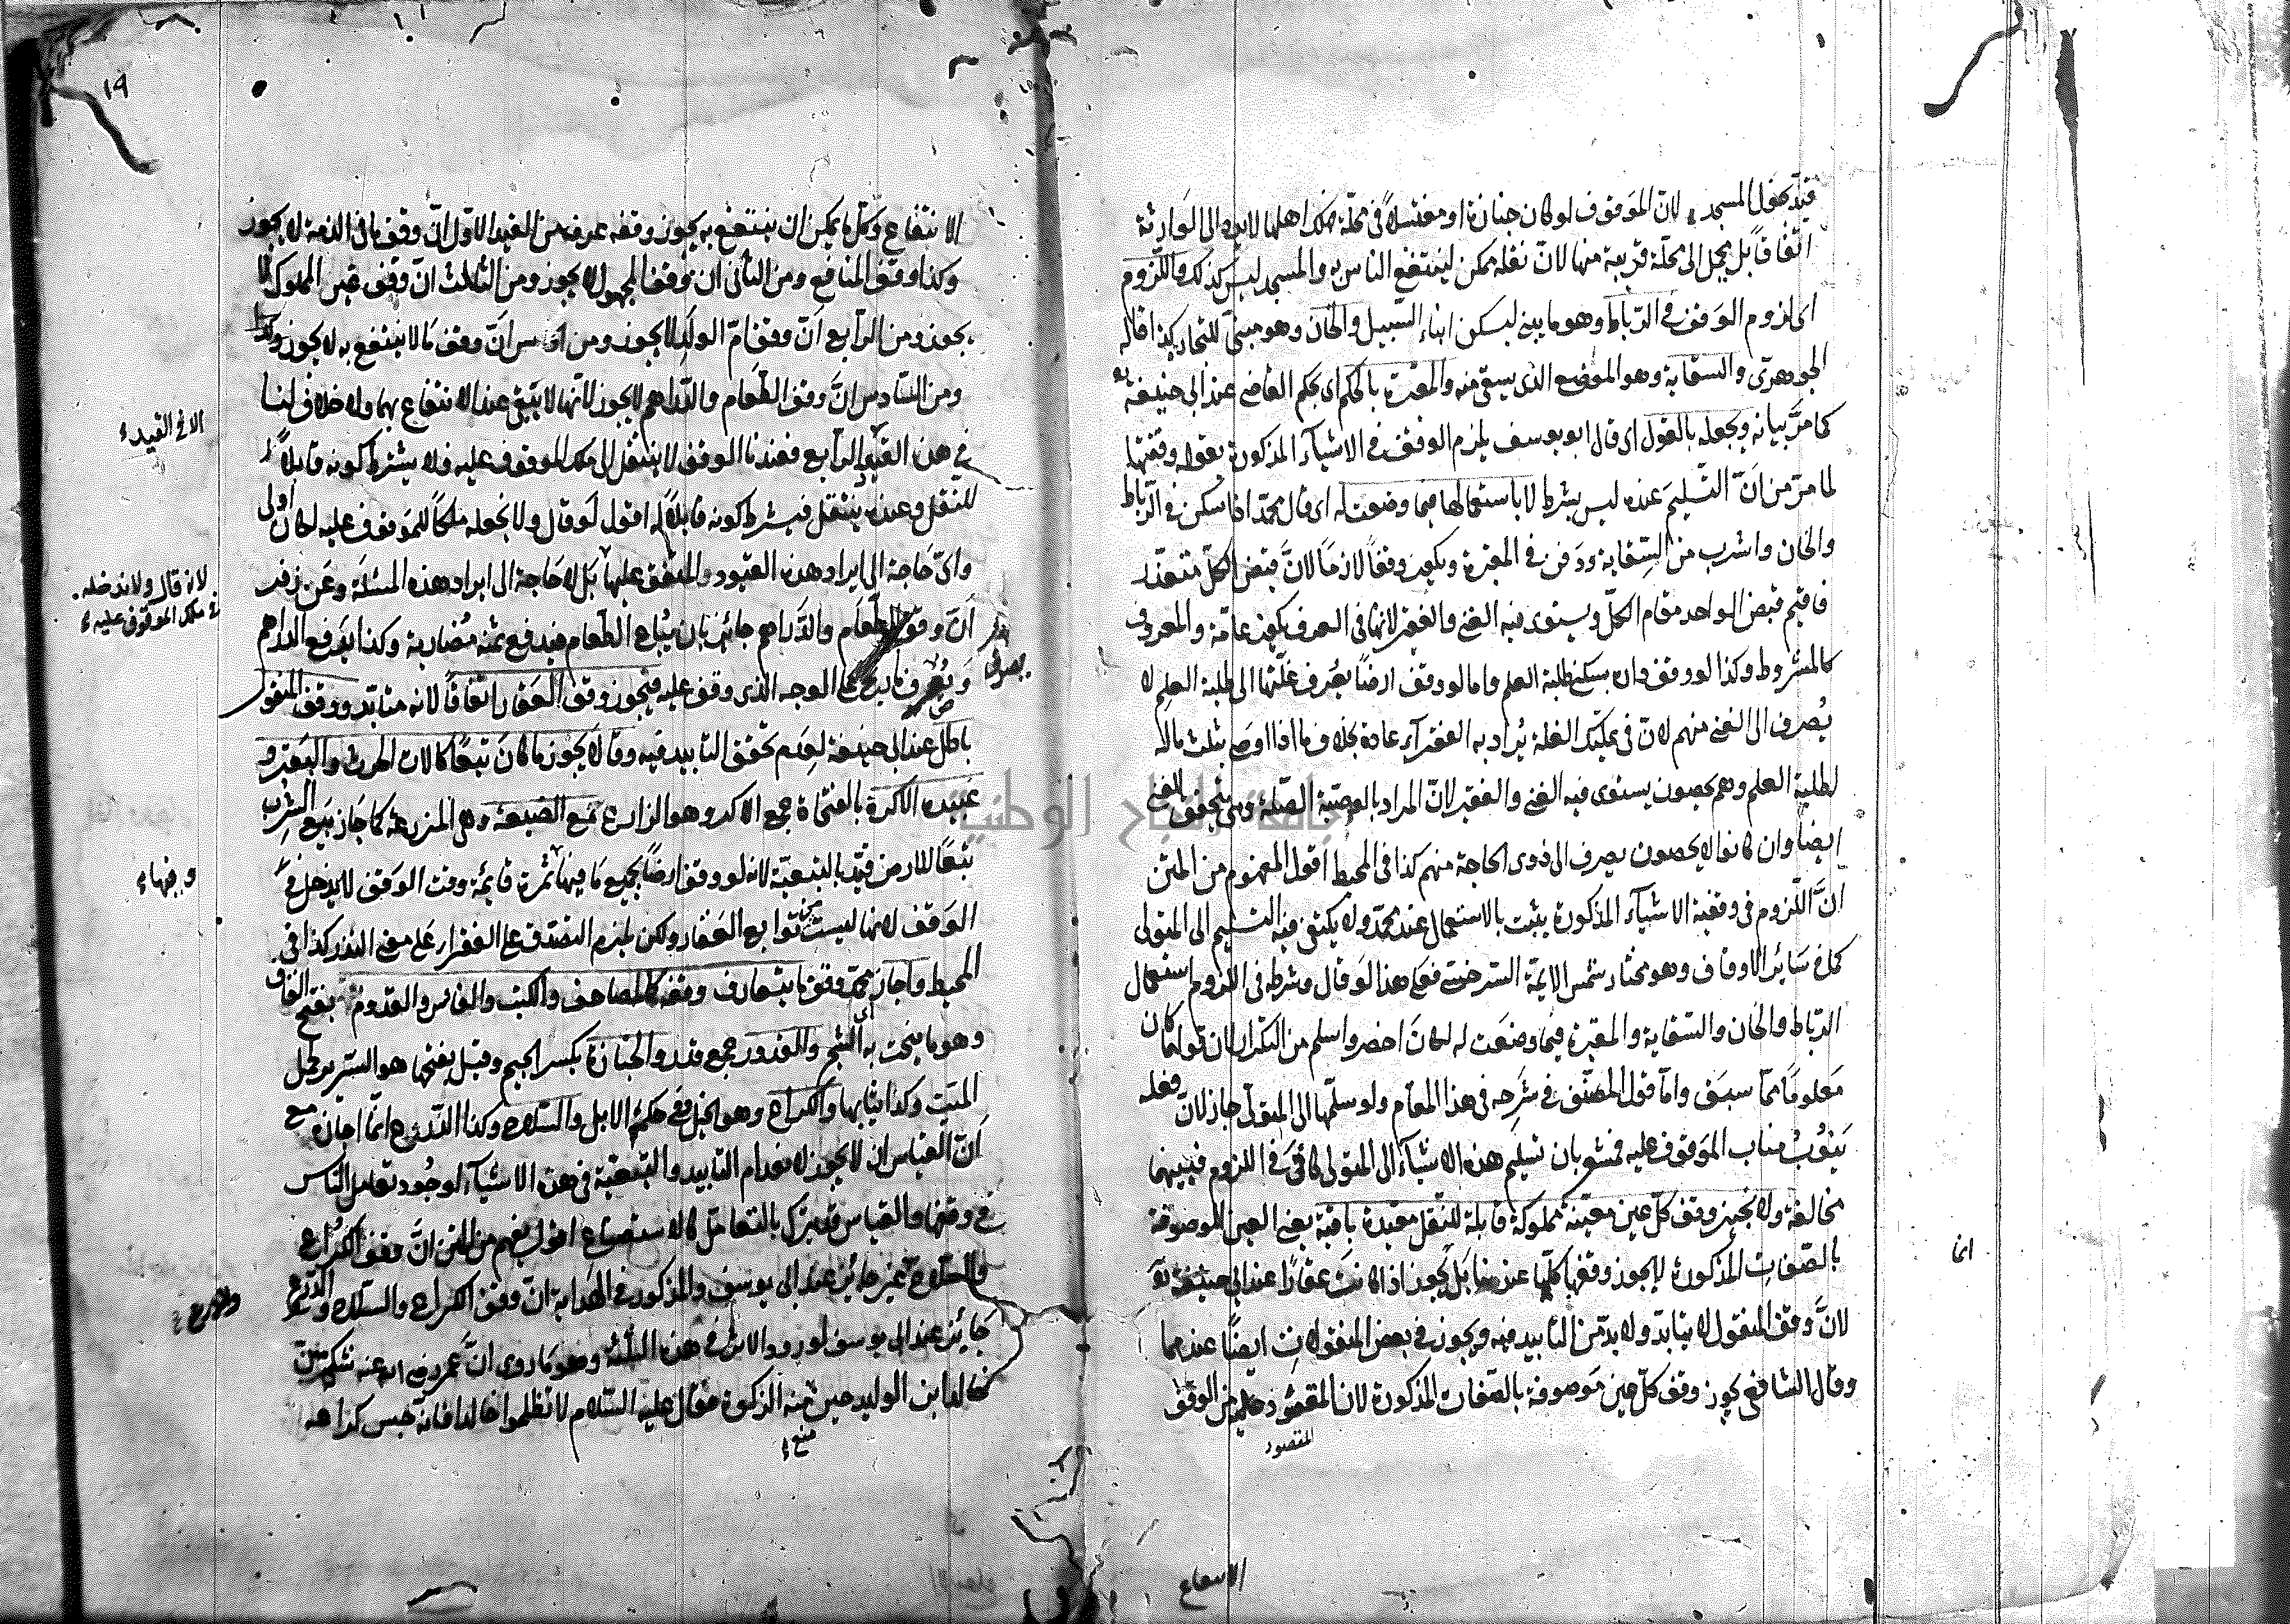 قيد بقوله المسجد لان الموقوف لو كان جنازة او مغتسلا في محلة هلك اهلها لا يرد الى الوارثة
اتفاقا بل يحمل الى محلة قريبة منها لان نقله ممكن لينتفع الناس به والمسجد ليس كذلك واللزوم
اى لزوم الوقف في الرباط وهو ما يبنى ليسكن ابناء السبيل والخان وهو مبنى للتجار كذا قاله
الجوهرى والسقاية وهو الموضع الذى يسقى منه والمقبرة بالحكم اى بحكم القاضى عند ابى حنيفة
كما مر بيانه ويجعله بالقول اى قال ابو يوسف يلزم الوقف في الاشياء المذكورة بقوله وقفتها
لما مر من ان التسليم عنده ليس بشرط لا باستعمالها فيما وضعت له اى قال محمد اذا سكن في الرباط
والخان واشرب من السقاية ودفن في المقبرة ويكون وقفا لازما لان قبض الكل متعذر
فاقيم قبض الواحد مقام الكل ويستوى فيه الغنى والفقير لانها في العرف يكون عامة والمعروف
كالمشروط وكذا لو وقف دارا يسكنها طلبة العلم واما لو وقف ارضا يصرف غلتها الى طلبة العلم لا
يصرف الى الغنى منهم لان في تمليك الغلة يراد به الفقراء عادة بخلاف ما اذا اوصى بثلث ماله
لطلبة العلم وهم يحصون يستوى فيه الغنى والفقير لان المراد بالوصية الصلة وهى يتحقق للغنى
ايضا وان كانوا لا يحصون يصرف الى ذوى الحاجة منهم كذا في المحيط اقول المفهوم من المتن
ان اللزوم في وقفية الاشياء المذكورة يثبت بالاستعمال عند محمد ولا يكتفى فيه التسليم الى المتولى
كما في سائر الاوقاف وهو مختار شمس الايمة السرخسى فعلى هذا لو قال وشرطه في اللزوم استعمال
الرباط والخان والسقاية والمقبرة فيما وضعت له لكان اخصر واسلم من التكرار لان قولهما كان
معلوما مما سبق واما قول المصنف في شرحه في هذا المقام ولو سلمها الى المتولى جاز لان فعله
ينوب مناب الموقوف عليه فمشعر بان تسليم هذه الاشياء الى المتولى كافى في اللزوم فبينهما
مخالفة ولا نجيز وقف كل عين معينة مملوكة قابلة للنقل مفيدة باقية يعنى العين الموصوفة
بالصفات المذكورة لا يجوز وقفها كلها عندنا بل يجوز اذا كانت عقارا عند ابى حنيفة
لان وقف المنقول لا يتابد ولا بد من التابيد فيه ويجوز في بعض المنقولات ايضا عندهما
وقال الشافعى يجوز وقف كل عين موصوفة بالصفات المذكورة لان المقصود من الوقف
المقصود
انما
الانتفاع
١٩
الانتفاع وكل ما يمكن ان ينتفع به يجوز وقفه عرف من القيد الاول ان وقف ما في الذمة لا يجوز
وكذا وقف المنافع ومن الثانى ان وقف المجهول لا يجوز ومن الثالث ان وقف غير المملوك لا
يجوز ومن الرابع ان وقف ام الولد لا يجوز ومن الخامس ان وقف ما لا ينتفع به لا يجوز
ومن السادس ان وقف الطعام والدراهم لا يجوز لانها لا يبقى عند الانتفاع بها ولا خلاف لنا
في هذه القيود الرابع فعندنا الوقف لا ينتقل الى ملك الموقوف عليه فلا يشترط كونه قابلا
للنقل وعنده ينتقل فيشترط كونه قابلا له اقول لو قال ولا نجعله ملكا للموقوف عليه لكان اولى
واى حاجة الى ايراد هذه القيود والمتفق عليها بل لا حاجة الى ايراد هذه المسئلة وعن زفر
ان وقف الطعام والدراهم جائز بان يباع الطعام فيدفع ثمنه مضاربة وكذا يدفع الدراهم
الوجه الذى وقف عليه فيجوز وقف العقار اتفاقا لانه متابد ووقف المنقول
باطل عند ابى حنيفة لعدم تحقق التابيد فيه وقالا يجوز ما كان تبعا كالات الحرث والبقر و
عبيده الاكرة بالفتحات جمع الاكر وهو الزارع مع الضيعة وهى المزرعة كما جاز بيع الشرب
تبعا للارض قيد بالتبعية لانه لو وقف ارضا بجميع ما فيها ثمرة قائمة وقت الوقف لا يدخل في
الوقف لانها ليست من توابع العقار ولكن يلزم التصدق على الفقراء على معنى النذر كذا في
المحيط واجاز محمد وقف ما يتعارف وقفه كالمصاحف والكتب والفاس والقدوم بفتح القاف
وهو ما ينحت به الشجر والقدور جمع قدر والجنازة بكسر الجيم وقيل بفتحها هو السرير يحمل
الميت وكذا ثيابها والكراع وهو الخيل وفي حكمه الابل والسلاح وكذا الدروع انما اجازه مع
ان القياس ان لا يجوز لانعدام التابيد والتبعية في هذه الاشياء لوجود تعامل الناس
في وقفها والقياس قد يترك بالتعامل كالاستصناع اقول يفهم من المتن ان وقف الكراع
والسلاح غير جائز عند ابى يوسف والمذكور في الهداية ان وقف الكراع والسلاح والدرع
جائز عند ابى يوسف لورود الاثر في هذه الثلثة وهو ما روى ان عمر رضى الله عنه شكى من
خالد ابن الوليد حين منع الزكوة فقال عليه السلام لا تظلموا خالدا فانه حبس كراعه
منع
الا في القيد
لانه قال ولا ندخله
في ملك الموقوف عليه
يصرف
وفيها
والدرع